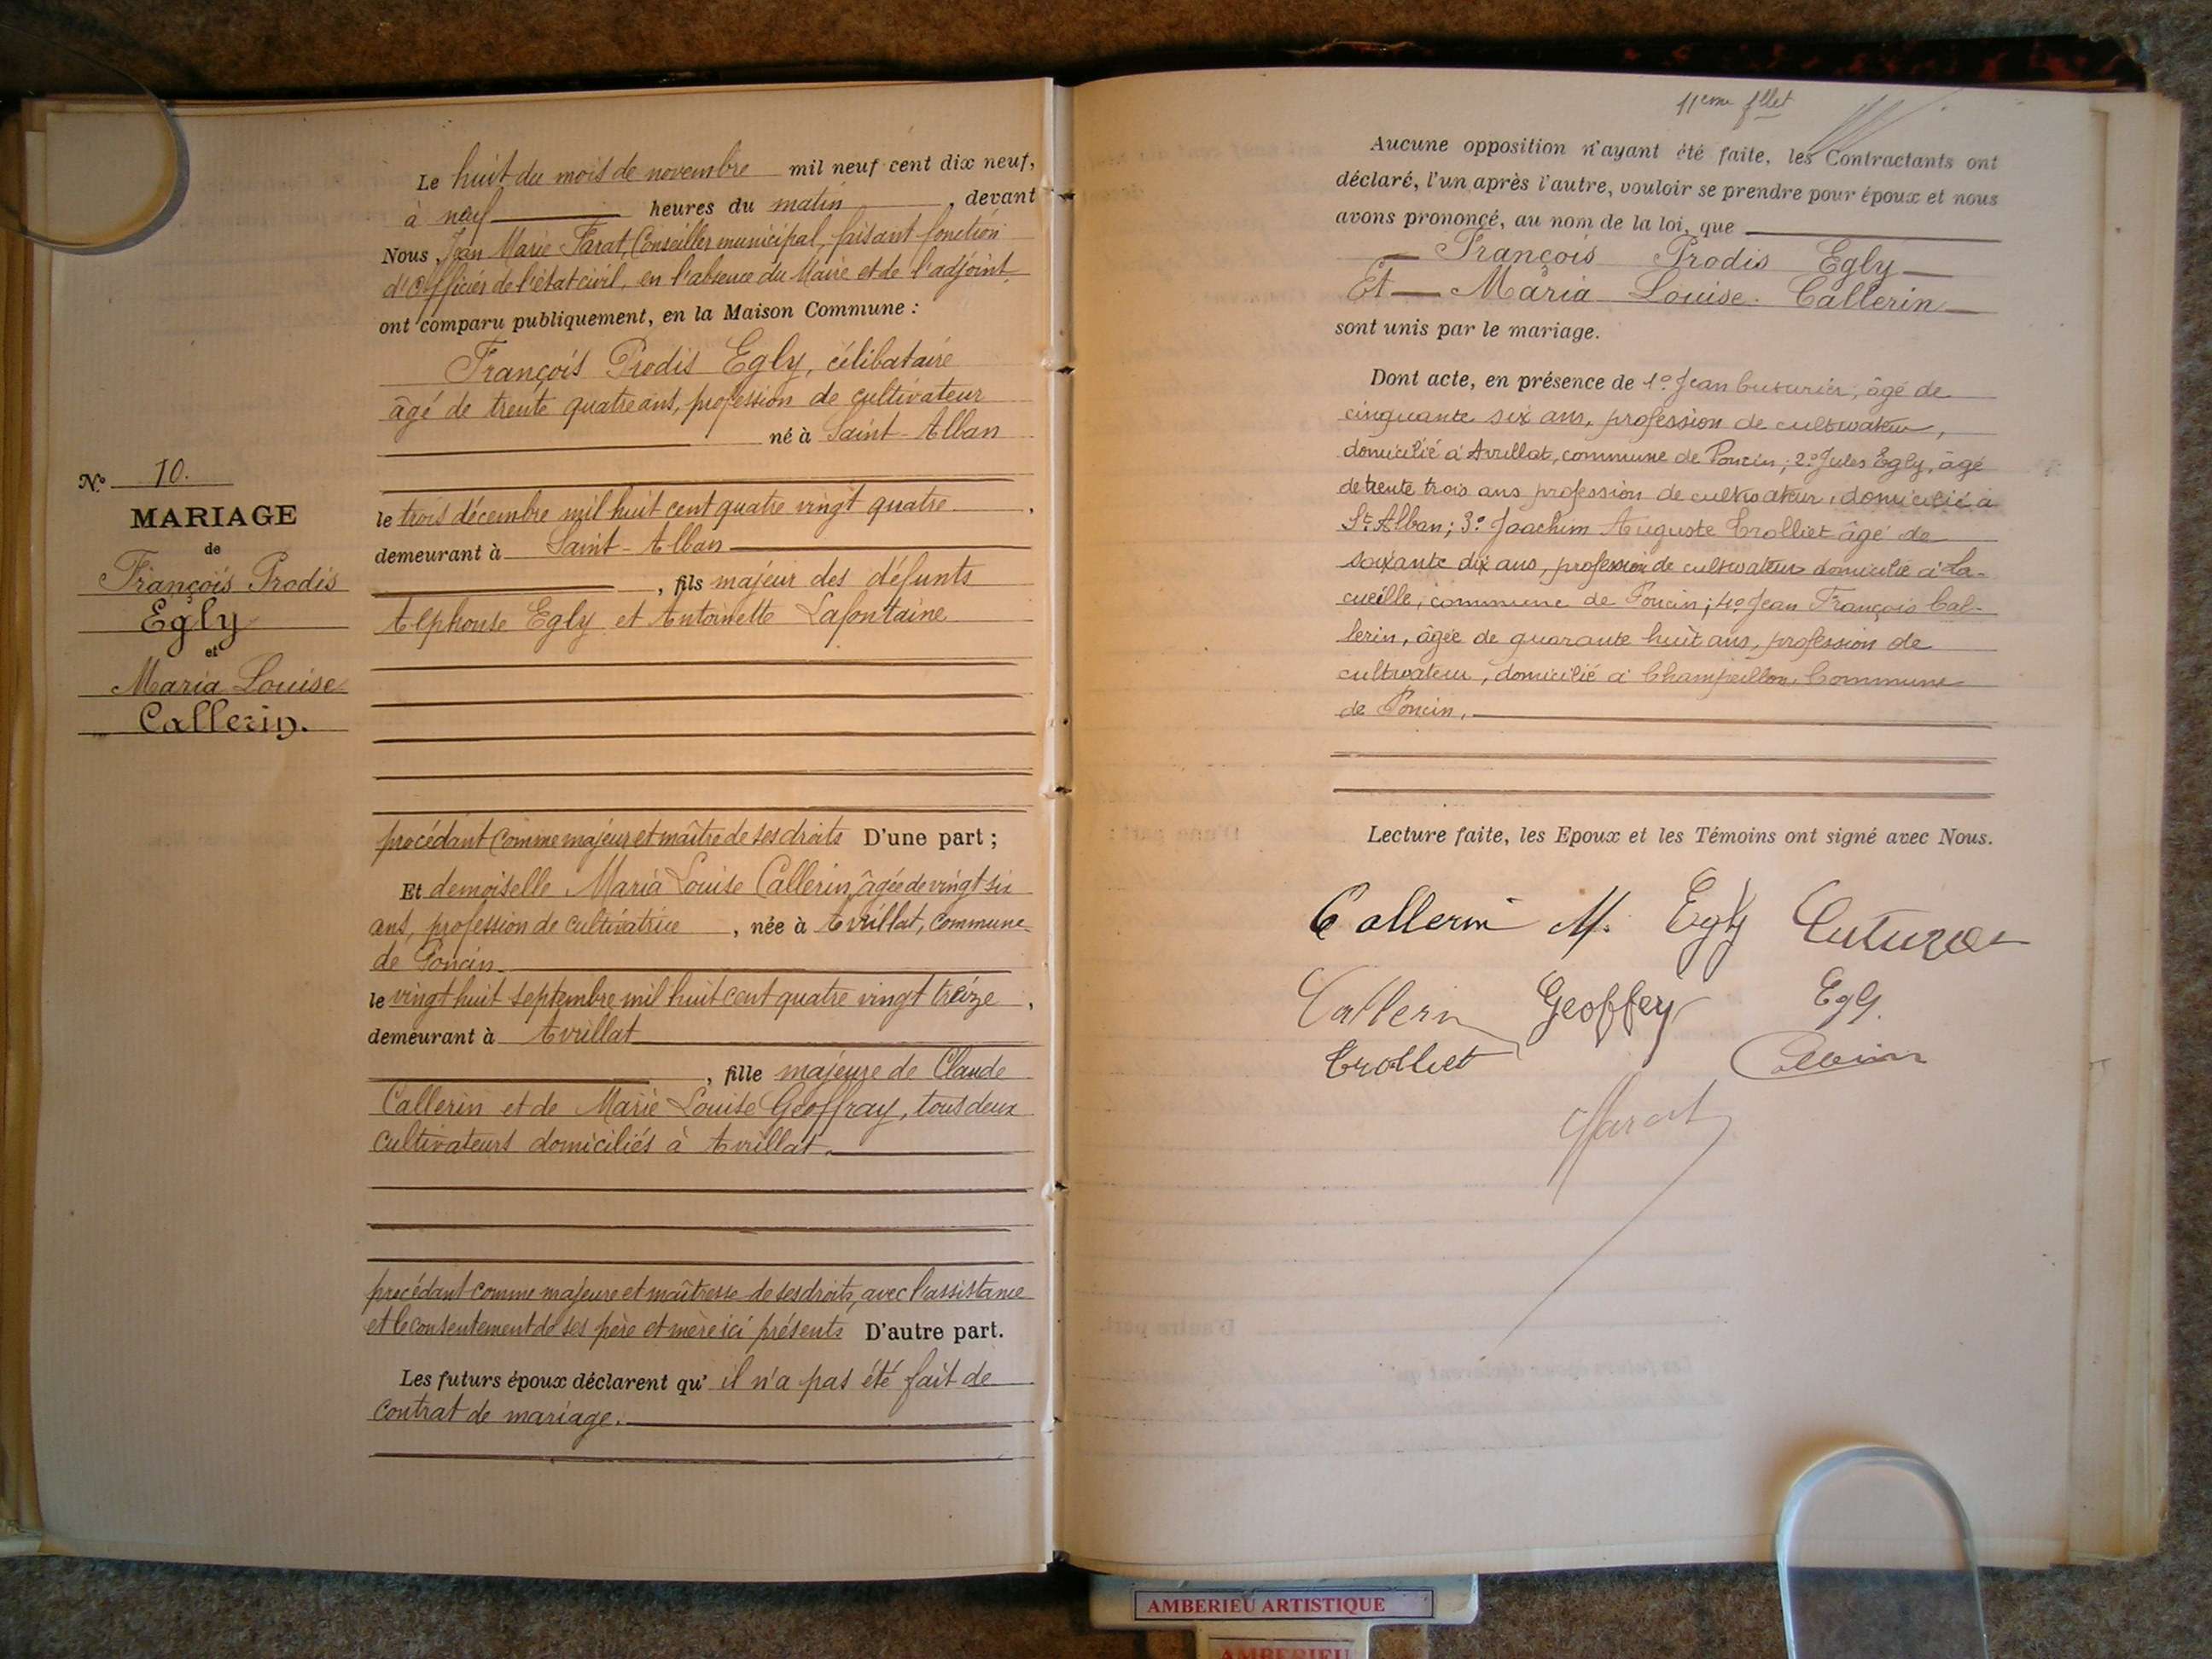 N.° 10.
MARIAGE
de
François Prodis
Egly
et
Maria Louise
Callerin.
Le huit du mois de novembre mil neuf cent dix neuf,
à neuf heures du matin, devant
Nous, Jean Marie Farat, Conseiller municipal, faisant fonction
d'Officier de l'état civil, en l'absence du Maire et de l'adjoint
ont comparu publiquement, en la Maison Commune :
François Prodis Egly, célibataire
âgé de trente quatre ans, profession de cultivateur
né à Saint-Alban
le trois décembre mil huit cent quatre vingt quatre,
demeurant à Saint-Alban
, fils majeur des défunts
Alphonse Egly et Antoinette Lafontaine
procédant comme majeur et maître de ses droits D'une part ;
Et demoiselle Maria Louise Callerin, âgée de vingt six
ans, profession de cultivatrice, née à Avrillat, commune
de Poncin
le vingt huit septembre mil huit cent quatre vingt treize,
demeurant à Avrillat
, fille majeure de Claude
Callerin et de Marie Louise Geoffray, tous deux
cultivateurs domiciliés à Avrillat.
procédant comme majeure et maîtresse de ses droits, avec l'assistance
et le consentement de ses père et mère ici présents D'autre part.
Les futurs époux déclarent qu' il n'a pas été fait de
contrat de mariage.
11eme fllet
Aucune opposition n'ayant été faite, les Contractants ont
déclaré, l'un après l'autre, vouloir se prendre pour époux et nous
avons prononcé, au nom de la loi, que
François Prodis Egly
Et Maria Louise Callerin
sont unis par le mariage.
Dont acte, en présence de 1° Jean Cuturier, âgé de
cinquante six ans, profession de cultivateur,
domicilié à Avrillat, commune de Poncin ; 2° Jules Egly, âgé
de trente trois ans profession de cultivateur, domicilié à
St Alban ; 3° Joachim Auguste Trolliet âgé de
soixante dix ans, profession de cultivateur domicilié à La-
cueille, commune de Poncin ; 4° Jean François Cal-
lerin, âgée de quarante huit ans, profession de
cultivateur, domicilié à Champeillon, Commune
de Poncin.
Lecture faite, les Epoux et les Témoins ont signé avec Nous.
Callerin M. Egly
Callerin Geoffey Egly
Trolliet
Farat
AMBERIEU ARTISTIQUE
AMBERIEU